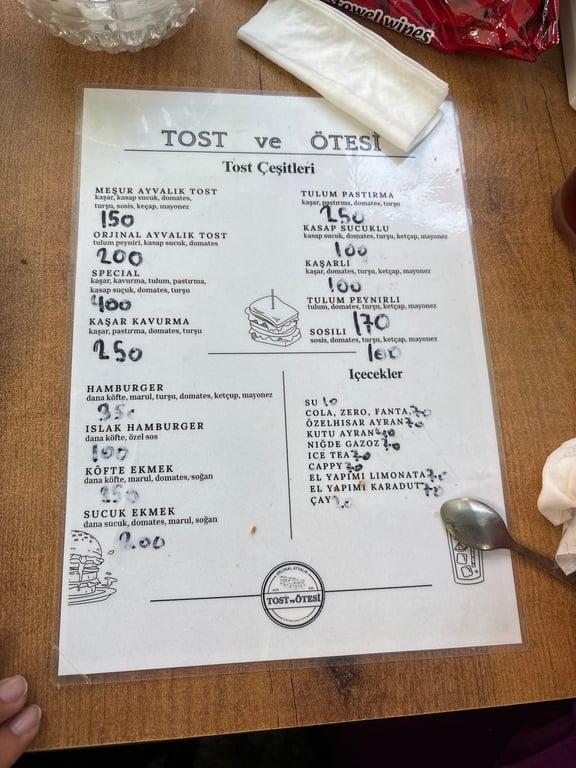 towel wipes
TOST ve ÖTESİ
Tost Çeşitleri
MEŞUR AYVALIK TOST
kaşar, kasap sucuk, domates,
turşu, sosis, keçap, mayonez
150
ORJINAL AYVALIK TOST
tulum peyniri, kasap sucuk, domates
200
SPECIAL
kaşar, kavurma, tulum, pastırma,
kasap suçuk, domates, turşu
400
KAŞAR KAVURMA
kaşar, pastırma, domates, turşu
250
TULUM PASTIRMA
kaşar, pastırma, domates, turşu
250
KASAP SUCUKLU
kasap sucuk, domates, turşu, ketçap, mayonez
100
KAŞARLI
kaşar, domates, turşu, ketçap, mayonez
100
TULUM PEYNIRLI
tulum, domates, turşu, ketçap, mayonez
170
SOSILI
sosis, domates, turşu, ketçap, mayonez
100
HAMBURGER
dana köfte, marul, turşu, domates, ketçup, mayonez
350
ISLAK HAMBURGER
dana köfte, özel sos
100
KÖFTE EKMEK
dana köfte, marul, domates, soğan
250
SUCUK EKMEK
dana sucuk, domates, marul, soğan
200
Içecekler
SU 10
COLA, ZERO, FANTA,
ÖZELHISAR AYRAN
KUTU AYRAN
NIĞDE GAZOZ
ICE TEA
CAPPY
EL YAPIMI LIMONATA
EL YAPIMI KARADUT 70
ÇAY 20
TOST ve ÖTESİ